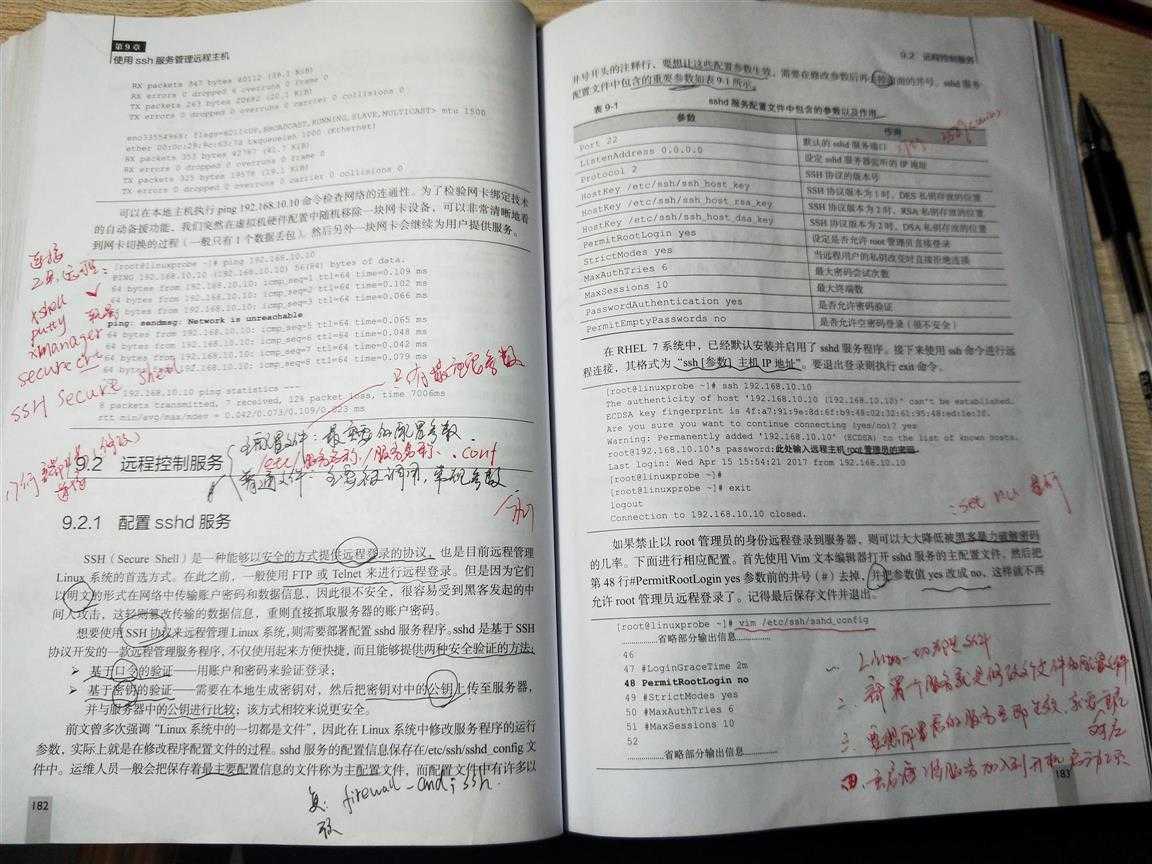 第9章
使用 ssh 服务管理远程主机
RX packets 347 bytes 40112 (39.1 KiB)
RX errors 0 dropped 4 overruns 0 frame 0
TX packets 263 bytes 20682 (20.1 KiB)
TX errors 0 dropped 0 overruns 0 carrier 0 collisions 0
RX packets 353 bytes 42767 (41.7 KiB)
RX errors 0 dropped 0 overruns 0 frame 0
TX packets 325 bytes 19576 (19.1 KiB)
TX errors 0 dropped 0 overruns 0 carrier 0 collisions 0
可以在本地主机执行 ping 192.168.10.10 命令检查网络的连通性。为了检验网卡绑定技术
的自动备援功能，我们突然在虚拟机硬件配置中随机移除一块网卡设备，可以非常清晰地看
到网卡切换的过程（一般只有 1 个数据丢包）。然后另外一块网卡会继续为用户提供服务。
[root@linuxprobe ~]# ping 192.168.10.10
PING 192.168.10.10 (192.168.10.10) 56(84) bytes of data.
64 bytes from 192.168.10.10: icmp_seq=1 ttl=64 time=0.109 ms
64 bytes from 192.168.10.10: icmp_seq=2 ttl=64 time=0.102 ms
64 bytes from 192.168.10.10: icmp_seq=3 ttl=64 time=0.066 ms
ping: sendmsg: Network is unreachable
64 bytes from 192.168.10.10: icmp_seq=5 ttl=64 time=0.065 ms
64 bytes from 192.168.10.10: icmp_seq=6 ttl=64 time=0.048 ms
64 bytes from 192.168.10.10: icmp_seq=7 ttl=64 time=0.042 ms
64 bytes from 192.168.10.10: icmp_seq=8 ttl=64 time=0.079 ms
--- 192.168.10.10 ping statistics ---
8 packets transmitted, 7 received, 12% packet loss, time 7006ms
rtt min/avg/max/mdev = 0.042/0.073/0.109/0.023 ms
连接
工具，远程：
xshell
putty
xmanager
secure crt
SSH Secure Shell
9.2 远程控制服务
主配置文件：最重要的配置参数
/etc/服务名称/服务名称.conf
普通文件：主要被调用，常规参数
9.2.1 配置 sshd 服务
SSH（Secure Shell）是一种能够以安全的方式提供远程登录的协议，也是目前远程管理
Linux 系统的首选方式。在此之前，一般使用 FTP 或 Telnet 来进行远程登录。但是因为它们
以明文的形式在网络中传输账户密码和数据信息，因此很不安全，很容易受到黑客发起的中
间人攻击，这轻则篡改传输的数据信息，重则直接抓取服务器的账户密码。
想要使用 SSH 协议来远程管理 Linux 系统，则需要部署配置 sshd 服务程序。sshd 是基于 SSH
协议开发的一款远程管理服务程序，不仅使用起来方便快捷，而且能够提供两种安全验证的方法：
➤ 基于口令的验证——用账户和密码来验证登录；
➤ 基于密钥的验证——需要在本地生成密钥对，然后把密钥对中的公钥上传至服务器，
并与服务器中的公钥进行比较；该方式相较来说更安全。
前文曾多次强调“Linux 系统中的一切都是文件”，因此在 Linux 系统中修改服务程序的运行
参数，实际上就是在修改程序配置文件的过程。sshd 服务的配置信息保存在/etc/ssh/sshd_config 文
件中。运维人员一般会把保存着最主要配置信息的文件称为主配置文件，而配置文件中有许多以
firewall-cmd; ssh.
182
9.2 远程控制服务
井号开头的注释行，要想让这些配置参数生效，需要在修改参数后再去掉前面的井号。sshd 服务
配置文件中包含的重要参数如表 9-1 所示。
表 9-1 sshd 服务配置文件中包含的参数以及作用
参数 作用
Port 22 默认的 sshd 服务端口
ListenAddress 0.0.0.0 设定 sshd 服务器监听的 IP 地址
Protocol 2 SSH 协议的版本号
HostKey /etc/ssh/ssh_host_key SSH 协议版本为 1 时，DES 私钥存放的位置
HostKey /etc/ssh/ssh_host_rsa_key SSH 协议版本为 2 时，RSA 私钥存放的位置
HostKey /etc/ssh/ssh_host_dsa_key SSH 协议版本为 2 时，DSA 私钥存放的位置
PermitRootLogin yes 设定是否允许 root 管理员直接登录
StrictModes yes 当远程用户的私钥改变时直接拒绝连接
MaxAuthTries 6 最大密码尝试次数
MaxSessions 10 最大终端数
PasswordAuthentication yes 是否允许密码验证
PermitEmptyPasswords no 是否允许空密码登录（很不安全）
在 RHEL 7 系统中，已经默认安装并启用了 sshd 服务程序。接下来使用 ssh 命令进行远
程连接，其格式为“ssh [参数] 主机 IP 地址”。要退出登录则执行 exit 命令。
[root@linuxprobe ~]# ssh 192.168.10.10
The authenticity of host '192.168.10.10 (192.168.10.10)' can't be established.
ECDSA key fingerprint is 4f:a7:91:9e:8d:6f:b9:48:02:32:61:95:48:ed:1e:3f.
Are you sure you want to continue connecting (yes/no)? yes
Warning: Permanently added '192.168.10.10' (ECDSA) to the list of known hosts.
root@192.168.10.10's password:此处输入远程主机 root 管理员的密码
Last login: Wed Apr 15 15:54:21 2017 from 192.168.10.10
[root@linuxprobe ~]#
[root@linuxprobe ~]# exit
logout
Connection to 192.168.10.10 closed.
: set nu
如果禁止以 root 管理员的身份远程登录到服务器，则可以大大降低被黑客暴力破解密码
的几率。下面进行相应配置。首先使用 Vim 文本编辑器打开 sshd 服务的主配置文件，然后把
第 48 行#PermitRootLogin yes 参数前的井号（#）去掉，并把参数值 yes 改成 no，这样就不再
允许 root 管理员远程登录了。记得最后保存文件并退出。
[root@linuxprobe ~]# vim /etc/ssh/sshd_config
………………省略部分输出信息………………
46
47 #LoginGraceTime 2m
48 PermitRootLogin no
49 #StrictModes yes
50 #MaxAuthTries 6
51 #MaxSessions 10
52
………………省略部分输出信息………………
一、Linux一切都是文件
二、部署个服务就是修改文件的配置文件
183